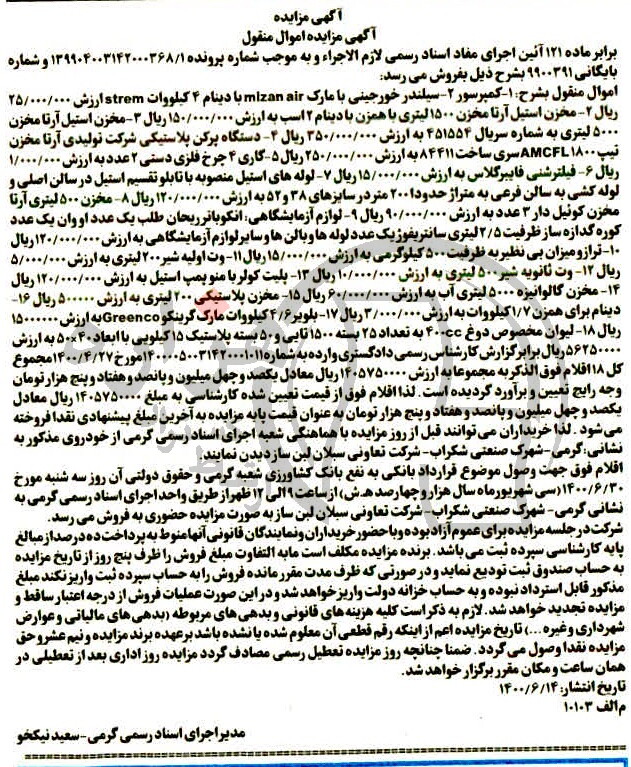 آگهی مزایده
آگهی مزایده اموال منقول
برابر ماده ۱۲۱ آئین اجرای مفاد اسناد رسمی لازم الاجراء و به موجب شماره پرونده ۱۳۹۹۰۴۰۰۳۱۴۲۰۰۰۳۶۸/۱ و شماره
بایگانی ۹۹۰۰۳۹۱ بشرح ذیل بفروش می رسد:
اموال منقول بشرح: ۱-کمپرسور ۲-سیلندر خورجینی با مارک mizan air با دینام ۴ کیلووات strem ارزش ۲۵/۰۰۰/۰۰۰
ریال ۲- مخزن استیل آرتا مخزن ۱۵۰۰ لیتری با همزن با دینام ۲ اسب به ارزش ۱۵۰/۰۰۰/۰۰۰ ریال ۳-مخزن استیل آرتا مخزن
۵۰۰۰ لیتری به شماره سریال ۴۵۱۵۵۴ به ارزش ۳۵۰/۰۰۰/۰۰۰ ریال ۴- دستگاه پرکن پلاستیکی شرکت تولیدی آرتا مخزن
تیپ AMCFL۱۸۰۰ سری ساخت ۸۴۴۱۱ به ارزش ۲۵۰/۰۰۰/۰۰۰ ریال ۵-گاری ۴ چرخ فلزی دستی ۲ عدد به ارزش ۱/۰۰۰/۰۰۰
ریال ۶- فیلترشنی فایبرگلاس به ارزش ۱۵/۰۰۰/۰۰۰ ریال ۷-لوله های استیل منصوبه با تابلو تقسیم استیل در سالن اصلی و
لوله کشی به سالن فرعی به متراژ حدودا ۲۰۰ متر در سایزهای ۳۸ و ۵۲ به ارزش ۱۲۰/۰۰۰/۰۰۰ ریال ۸- مخزن ۵۰۰ لیتری آرتا
مخزن کوئیل دار ۳ عدد به ارزش ۹۰/۰۰۰/۰۰۰ ریال ۹-لوازم آزمایشگاهی: انکوباتر ریحان طلب یک عدد او وان یک عدد
کوره گدازه ساز ظرفیت ۲/۵ لیتری سانتریفوژ یک عدد لوله ها و بالن ها و سایر لوازم آزمایشگاهی به ارزش ۱۲۰/۰۰۰/۰۰۰ ریال
۱۰-ترازو میزان بی نظیر به ظرفیت ۵۰۰ کیلوگرمی به ارزش ۱۵/۰۰۰/۰۰۰ ریال ۱۱-وت اولیه شیر ۲۰۰ لیتری به ارزش ۵/۰۰۰/۰۰۰
ریال ۱۲- وت ثانویه شیر ۵۰۰ لیتری به ارزش ۱۰/۰۰۰/۰۰۰ ریال ۱۳- پلیت کولر با منو پمپ استیل به ارزش ۱۲۰/۰۰۰/۰۰۰ ریال
۱۴- مخزن گالوانیزه ۵۰۰۰ لیتری آب به ارزش ۶۰/۰۰۰/۰۰۰ ریال ۱۵- مخزن پلاستیکی ۲۰۰ لیتری به ارزش ۵۰۰۰۰۰ ریال ۱۶-
دینام برای همزن ۱/۷ کیلووات به ارزش ۳/۰۰۰/۰۰۰ ریال ۱۷- بلویر ۴/۶ کیلووات مارک گرینکو Greenco به ارزش ۱۵۰۰۰۰۰۰
ریال ۱۸- لیوان مخصوص دوغ ۴۰۰cc به تعداد ۲۵ بسته ۱۵۰۰ تایی و ۵۰ بسته پلاستیک ۱۵ کیلویی با ابعاد ۴۰×۵۰ به ارزش
۵۶۲۵۰۰۰۰ ریال برابر گزارش کارشناس رسمی دادگستری وارده به شماره ۱۴۰۰۰۰۵۰۰۳۱۴۲۰۰۰۱۰۱۱ مورخ ۱۴۰۰/۴/۲۷ مجموع
کل ۱۸ اقلام فوق الذکر به مجموعا به ارزش ۱۴۰۵۷۵۰۰۰۰ ریال معادل یکصد و چهل میلیون و پانصد و هفتاد و پنج هزار تومان
وجه رایج تعیین و برآورد گردیده است. لذا اقلام فوق از قیمت تعیین شده کارشناسی به مبلغ ۱۴۰۵۷۵۰۰۰۰ ریال معادل
یکصد و چهل میلیون و پانصد و هفتاد و پنج هزار تومان به عنوان قیمت پایه مزایده به آخرین مبلغ پیشنهادی نقدا فروخته
می شود. لذا خریداران می توانند قبل از روز مزایده با هماهنگی شعبه اجرای اسناد رسمی گرمی از خودروی مذکور به
نشانی: گرمی-شهرک صنعتی شکراب- شرکت تعاونی سبلان لبن ساز دیدن نمایند.
اقلام فوق جهت وصول موضوع قرارداد بانکی به نفع بانک کشاورزی شعبه گرمی و حقوق دولتی آن روز سه شنبه مورخ
۱۴۰۰/۶/۳۰ (سی شهریورماه سال هزار و چهارصد هـ.ش) از ساعت ۹ الی ۱۲ ظهر از طریق واحد اجرای اسناد رسمی گرمی به
نشانی گرمی- شهرک صنعتی شکراب- شرکت تعاونی سبلان لبن ساز به صورت مزایده حضوری به فروش می رسد.
شرکت در جلسه مزایده برای عموم آزاد بوده و با حضور خریداران و نمایندگان قانونی آنها منوط به پرداخت ده درصد از مبالغ
پایه کارشناسی سپرده ثبت می باشد. برنده مزایده مکلف است مابه التفاوت مبلغ فروش را ظرف پنج روز از تاریخ مزایده
به حساب صندوق ثبت تودیع نماید و در صورتی که ظرف مدت مقرر مانده فروش را به حساب سپرده ثبت واریز نکند مبلغ
مذکور قابل استرداد نبوده و به حساب خزانه دولت واریز خواهد شد و در این صورت عملیات فروش از درجه اعتبار ساقط و
مزایده تجدید خواهد شد. لازم به ذکر است کلیه هزینه های قانونی و بدهی های مربوطه (بدهی های مالیاتی و عوارض
شهرداری و غیره...) تاریخ مزایده اعم از اینکه رقم قطعی آن معلوم شده یا نشده باشد بر عهده برنده مزایده و نیم عشر و حق
مزایده نقدا وصول می گردد. ضمنا چنانچه روز مزایده تعطیل رسمی مصادف گردد مزایده روز اداری بعد از تعطیلی در
همان ساعت و مکان مقرر برگزار خواهد شد.
تاریخ انتشار: ۱۴۰۰/۶/۱۴
م الف ۱۰۱۰۳
مدیر اجرای اسناد رسمی گرمی-سعید نیکخو